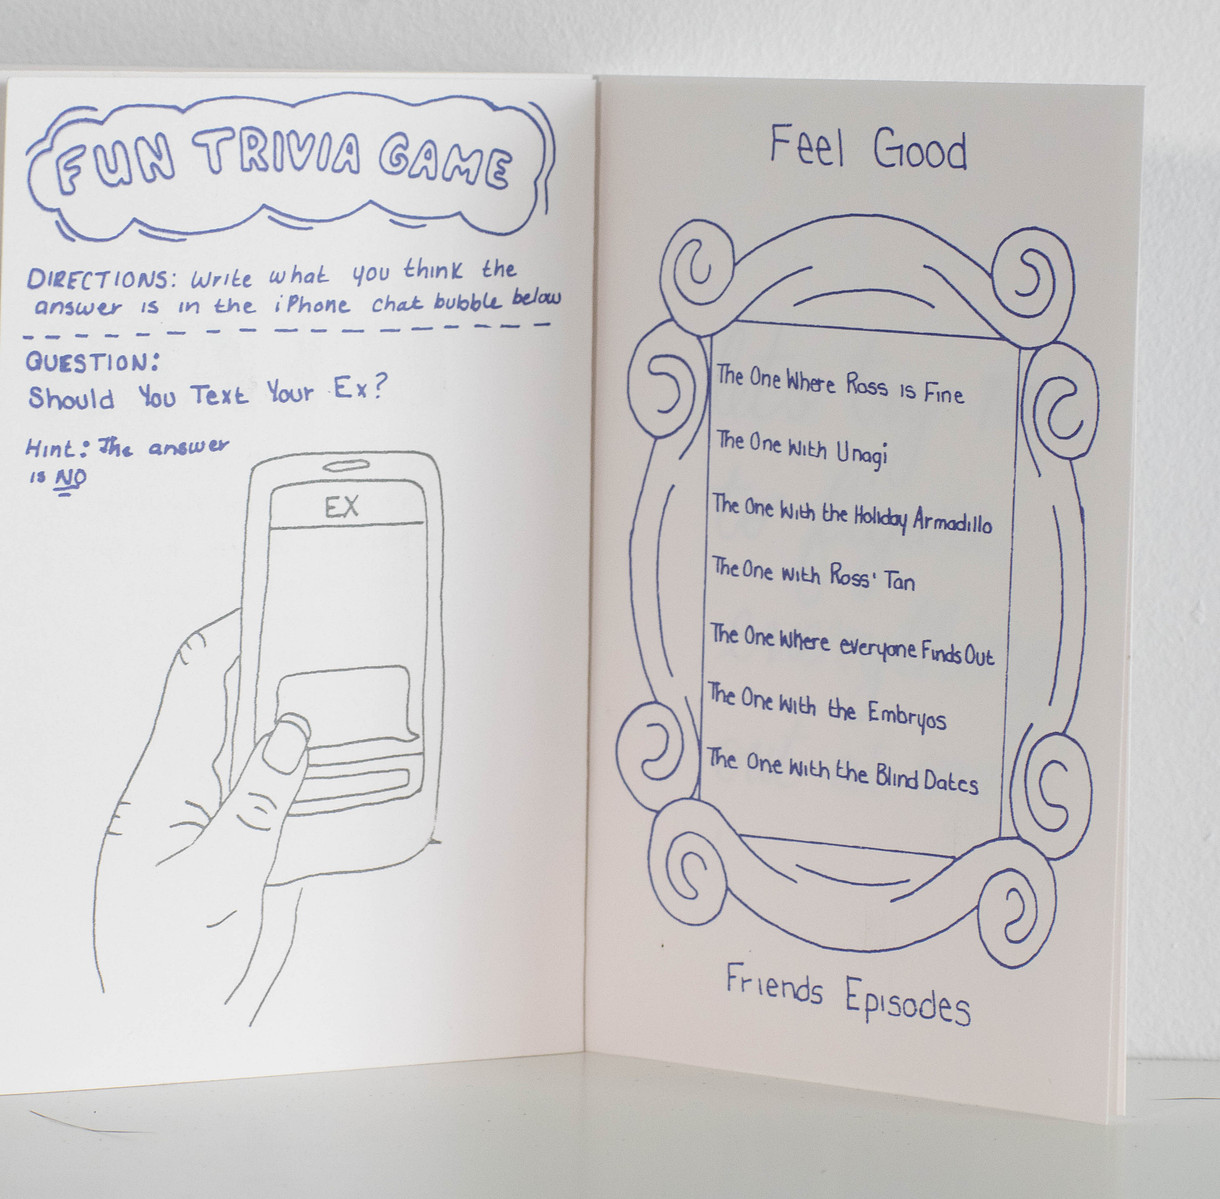 FUN TRIVIA GAME
DIRECTIONS: Write what you think the
answer is in the iPhone chat bubble below
QUESTION:
Should You Text Your Ex?
Hint: The answer
is NO
EX
Feel Good
The One Where Ross is Fine
The One With Unagi
The One With the Holiday Armadillo
The One with Ross' Tan
The One Where everyone Finds Out
The One With the Embryos
The One With the Blind Dates
Friends Episodes